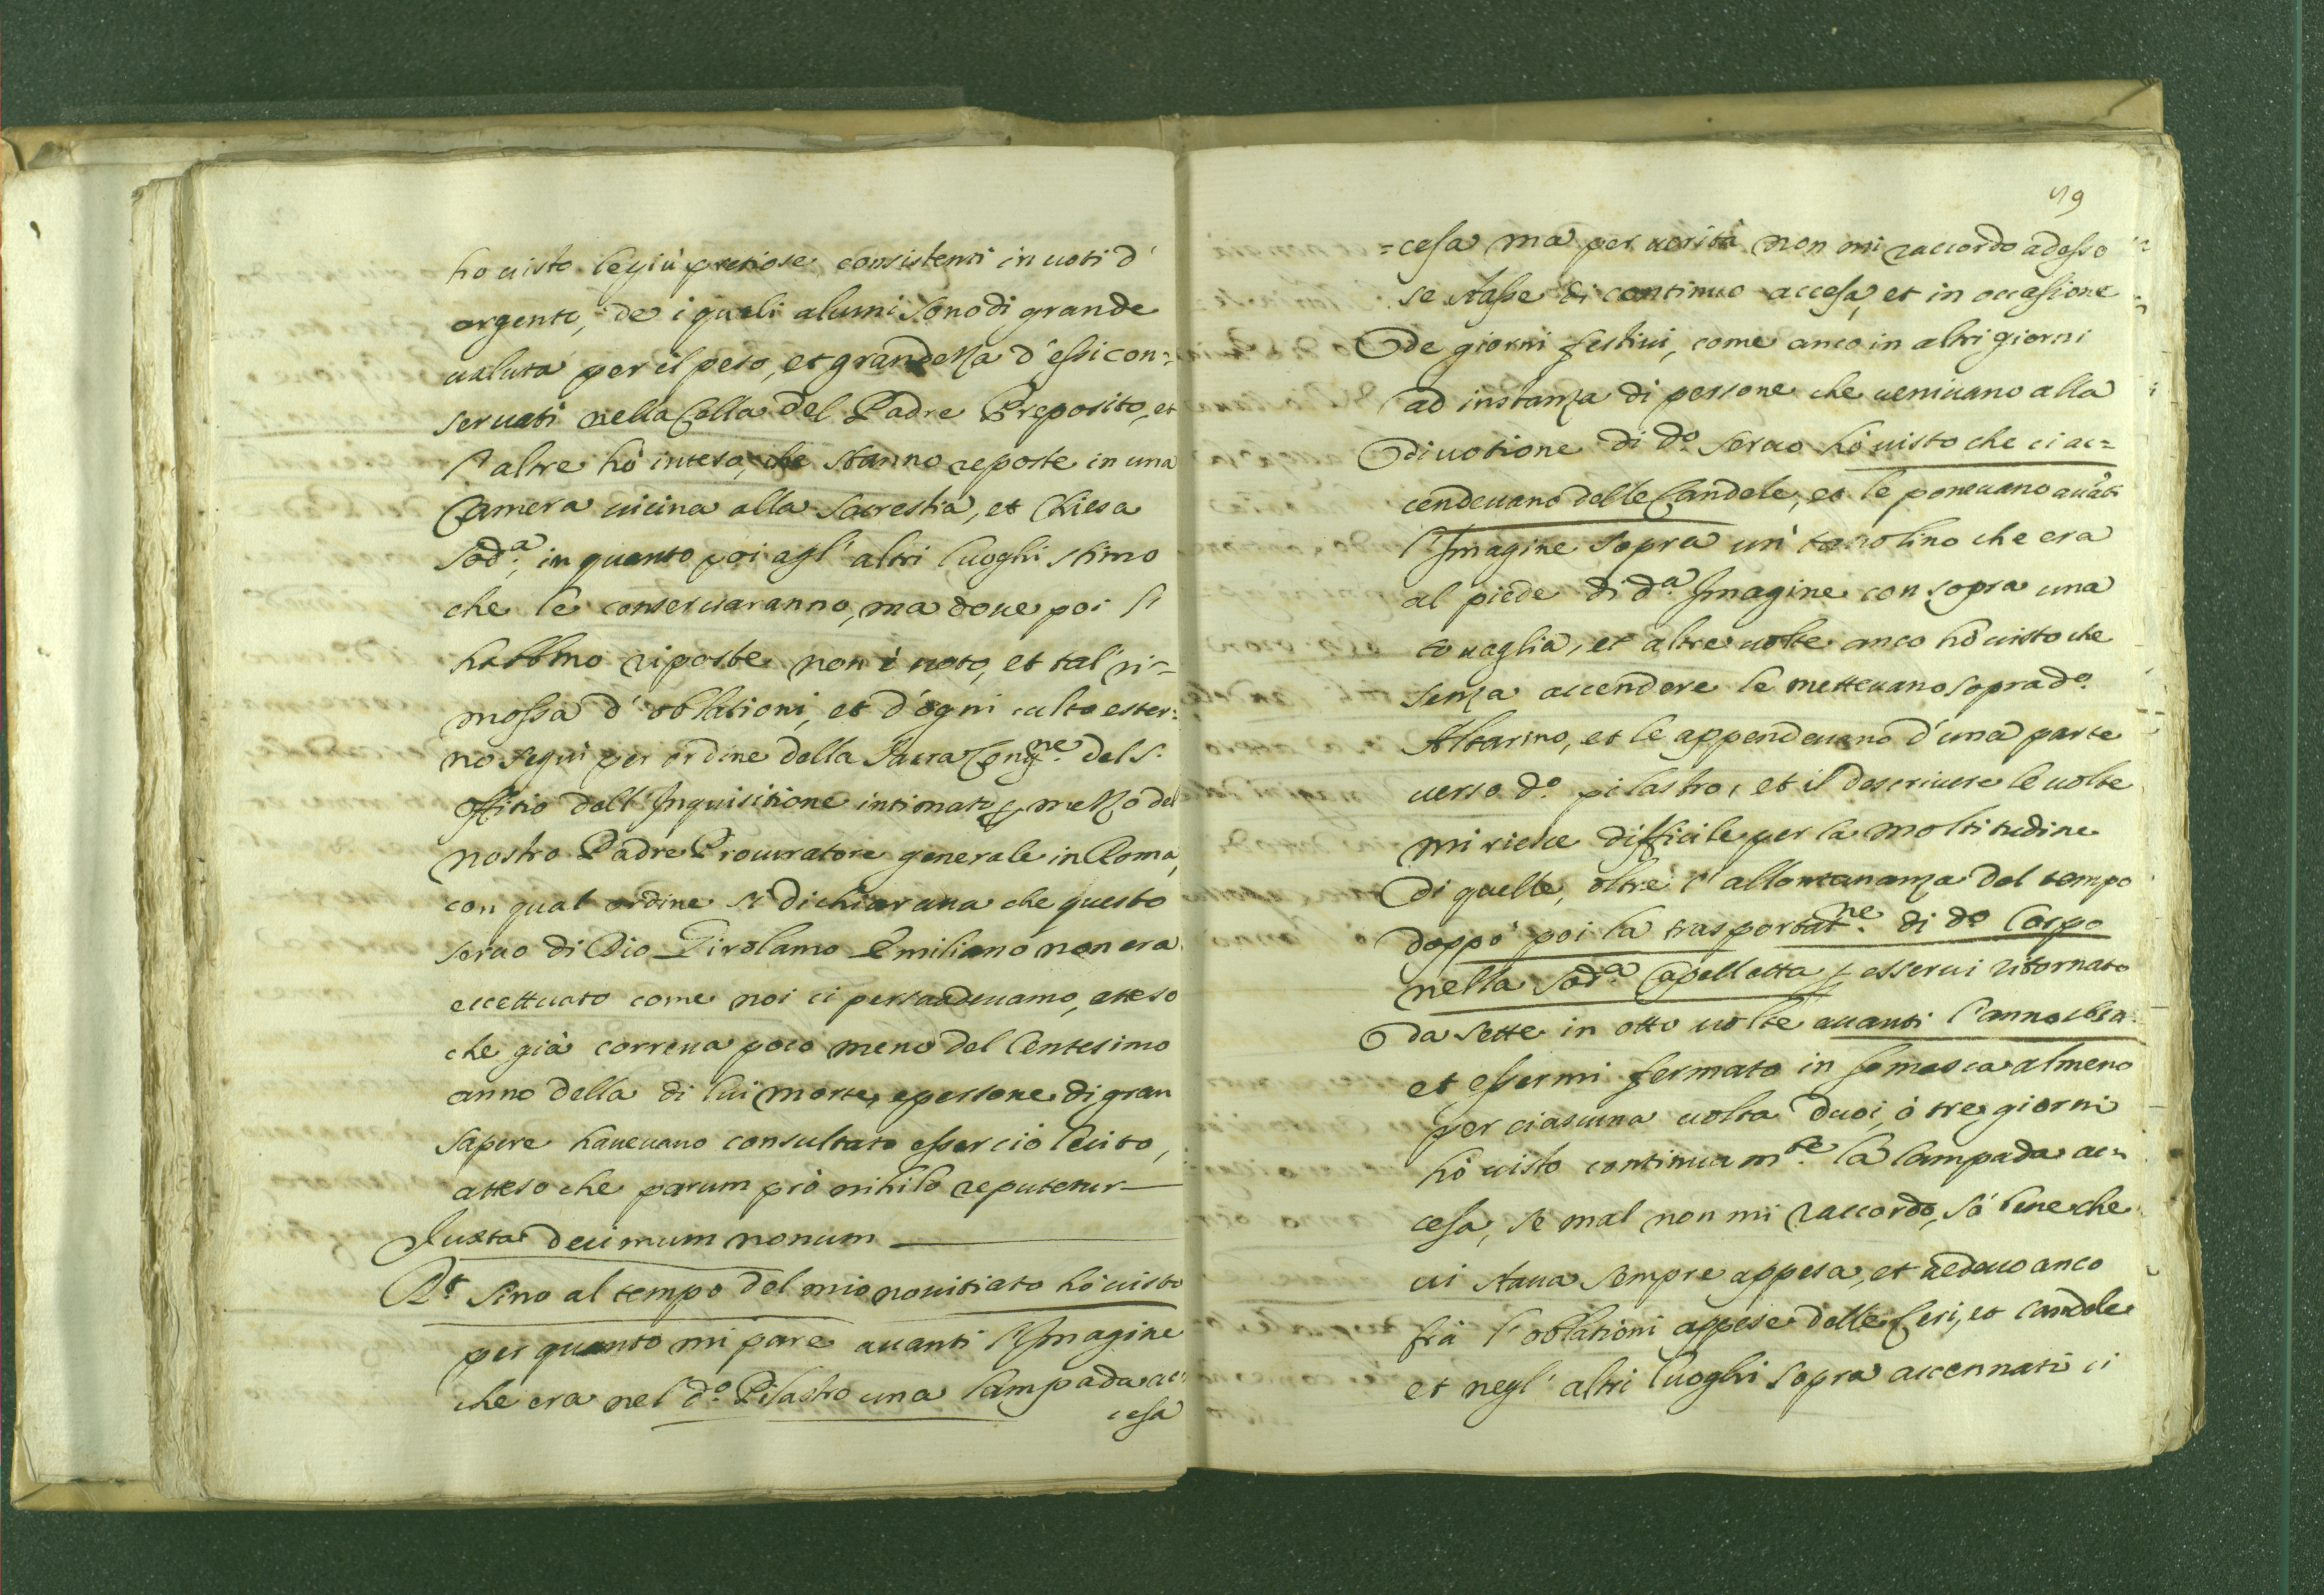 ho uisto le più pretiose, consistenti in uoti d'
argento, de i quali alcuni sono di grande
ualuta per il peso, et grandezza d'essi con=
seruati nella Cella del Padre Preposito, et
l'altre hò inteso, che stanno reposte in una
Camera uicina alla Sacrestia, et Chiesa
sod.a, in quanto poi agl'altri luoghi stimo
che le conseruaranno, ma doue poi si
habbino riposte non è noto, et tal ri=
mossa d'oblationi, et d'ogni culto ester=
no seguì per ordine della Sacra Cong.ne del S.
Offitio dell'Inquisitione intimato p mezzo del
nostro Padre Procuratore generale in Roma,
con qual ordine si dichiaraua che questo
seruo di Dio Girolamo Emiliano non era
eccettuato come noi ci persuadeuamo, atteso
che già correua poco meno del Centesimo
anno della di lui morte, e persone di gran
sapere haueuano consultato esser ciò lecito,
atteso che parum prò nihilo reputetur
Iuxta decimum nonum
R.t Sino al tempo del mio nouitiato hò uisto
per quanto mi pare auanti l'Imagine
che era nel d.o Pilastro una lampada ac=
cesa
59
=cesa ma per uerità non mi raccordo adesso
se stasse di continuo accesa, et in occasione
de giorni festiui, come anco in altri giorni
ad instanza di persone che ueniuano alla
diuotione di d.o seruo hò uisto che ci ac=
cendeuano delle Candele, et le poneuano auati
l'Imagine sopra un' tauolino che era
al piede di d.a Imagine con sopra una
touaglia, et altre uolte anco hò uisto che
senza accendere le metteuano sopra d.o
Altarino, et le appendeuano d'una parte
uerso d.o pilastro, et il descriuere le uolte
mi riesce difficile per la moltitudine
di quelle, oltre l'allontananza del tempo
doppo poi la trasportat.ne di d.o Corpo
nella sod.a Capelletta p esserui ritornato
da sette in otto uolte auanti l'anno 1624
et essermi fermato in Somasca almeno
per ciascuna uolta duoi, ò tre giorni
hò uisto continuam.te la lampada ac=
cesa, se mal non mi raccordo, sò bene che
ui staua sempre appesa, et uedeuo anco
frà l'oblationi appese delle Ceri, et Candele
et negl'altri luoghi sopra accennati ci